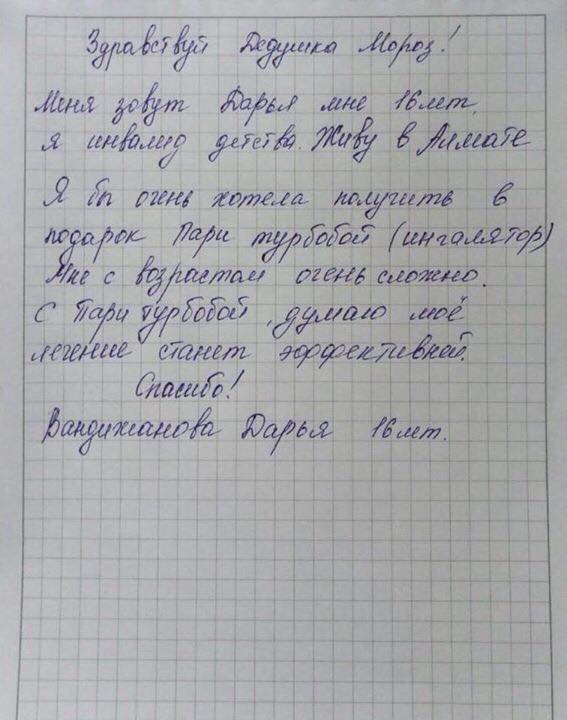 Здравствуй Дедушка Мороз!
Меня зовут Дарья мне 16 лет,
я инвалид детства. Живу в Алмате
Я бы очень хотела получить в
подарок Пари турбобой (ингалятор)
Мне с возрастом очень сложно.
С Пари турбобой, думаю моё
лечение станет эффективней.
Спасибо!
Вандижанова Дарья 16 лет.